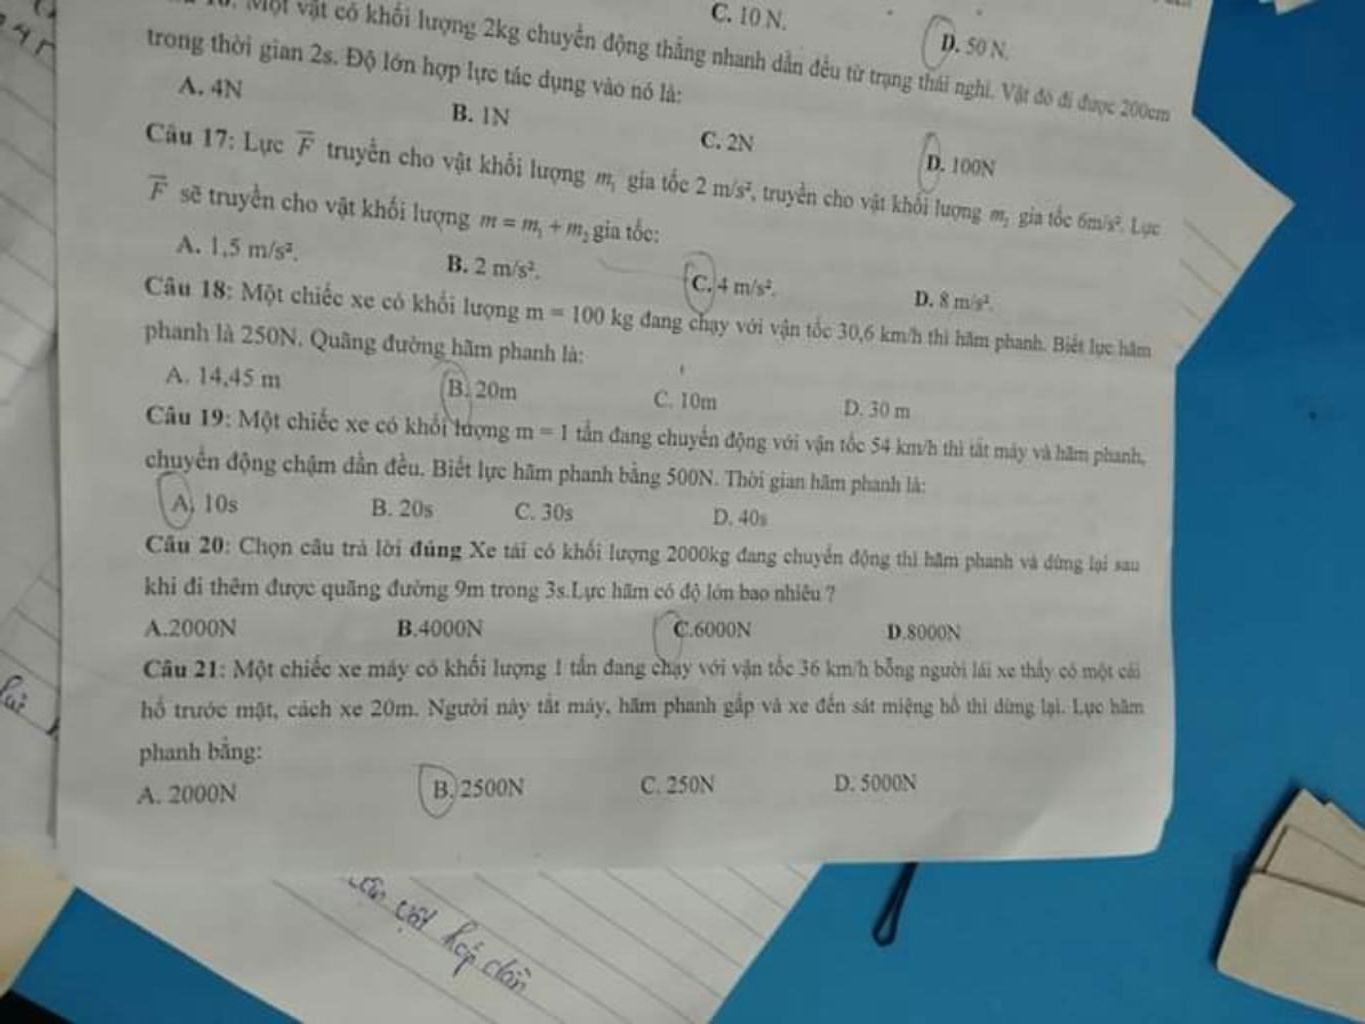 C. 10 N.
D. 50 N.
Một vật có khối lượng 2kg chuyển động thẳng nhanh dần đều từ trạng thái nghỉ. Vật đó đi được 200cm
trong thời gian 2s. Độ lớn hợp lực tác dụng vào nó là:
A. 4N B. 1N C. 2N D. 100N
Câu 17: Lực F⃗ truyền cho vật khối lượng m₁ gia tốc 2 m/s², truyền cho vật khối lượng m₂ gia tốc 6m/s². Lực
F⃗ sẽ truyền cho vật khối lượng m = m₁ + m₂ gia tốc:
A. 1,5 m/s². B. 2 m/s². C. 4 m/s². D. 8 m/s².
Câu 18: Một chiếc xe có khối lượng m = 100 kg đang chạy với vận tốc 30,6 km/h thì hãm phanh. Biết lực hãm
phanh là 250N. Quãng đường hãm phanh là:
A. 14,45 m B. 20m C. 10m D. 30 m
Câu 19: Một chiếc xe có khối lượng m = 1 tấn đang chuyển động với vận tốc 54 km/h thì tắt máy và hãm phanh,
chuyển động chậm dần đều. Biết lực hãm phanh bằng 500N. Thời gian hãm phanh là:
A. 10s B. 20s C. 30s D. 40s
Câu 20: Chọn câu trả lời đúng Xe tải có khối lượng 2000kg đang chuyển động thì hãm phanh và dừng lại sau
khi đi thêm được quãng đường 9m trong 3s.Lực hãm có độ lớn bao nhiêu ?
A.2000N B.4000N C.6000N D.8000N
Câu 21: Một chiếc xe máy có khối lượng 1 tấn đang chạy với vận tốc 36 km/h bỗng người lái xe thấy có một cái
hố trước mặt, cách xe 20m. Người này tắt máy, hãm phanh gấp và xe đến sát miệng hố thì dừng lại. Lực hãm
phanh bằng:
A. 2000N B. 2500N C. 250N D. 5000N
vật hấp dẫn